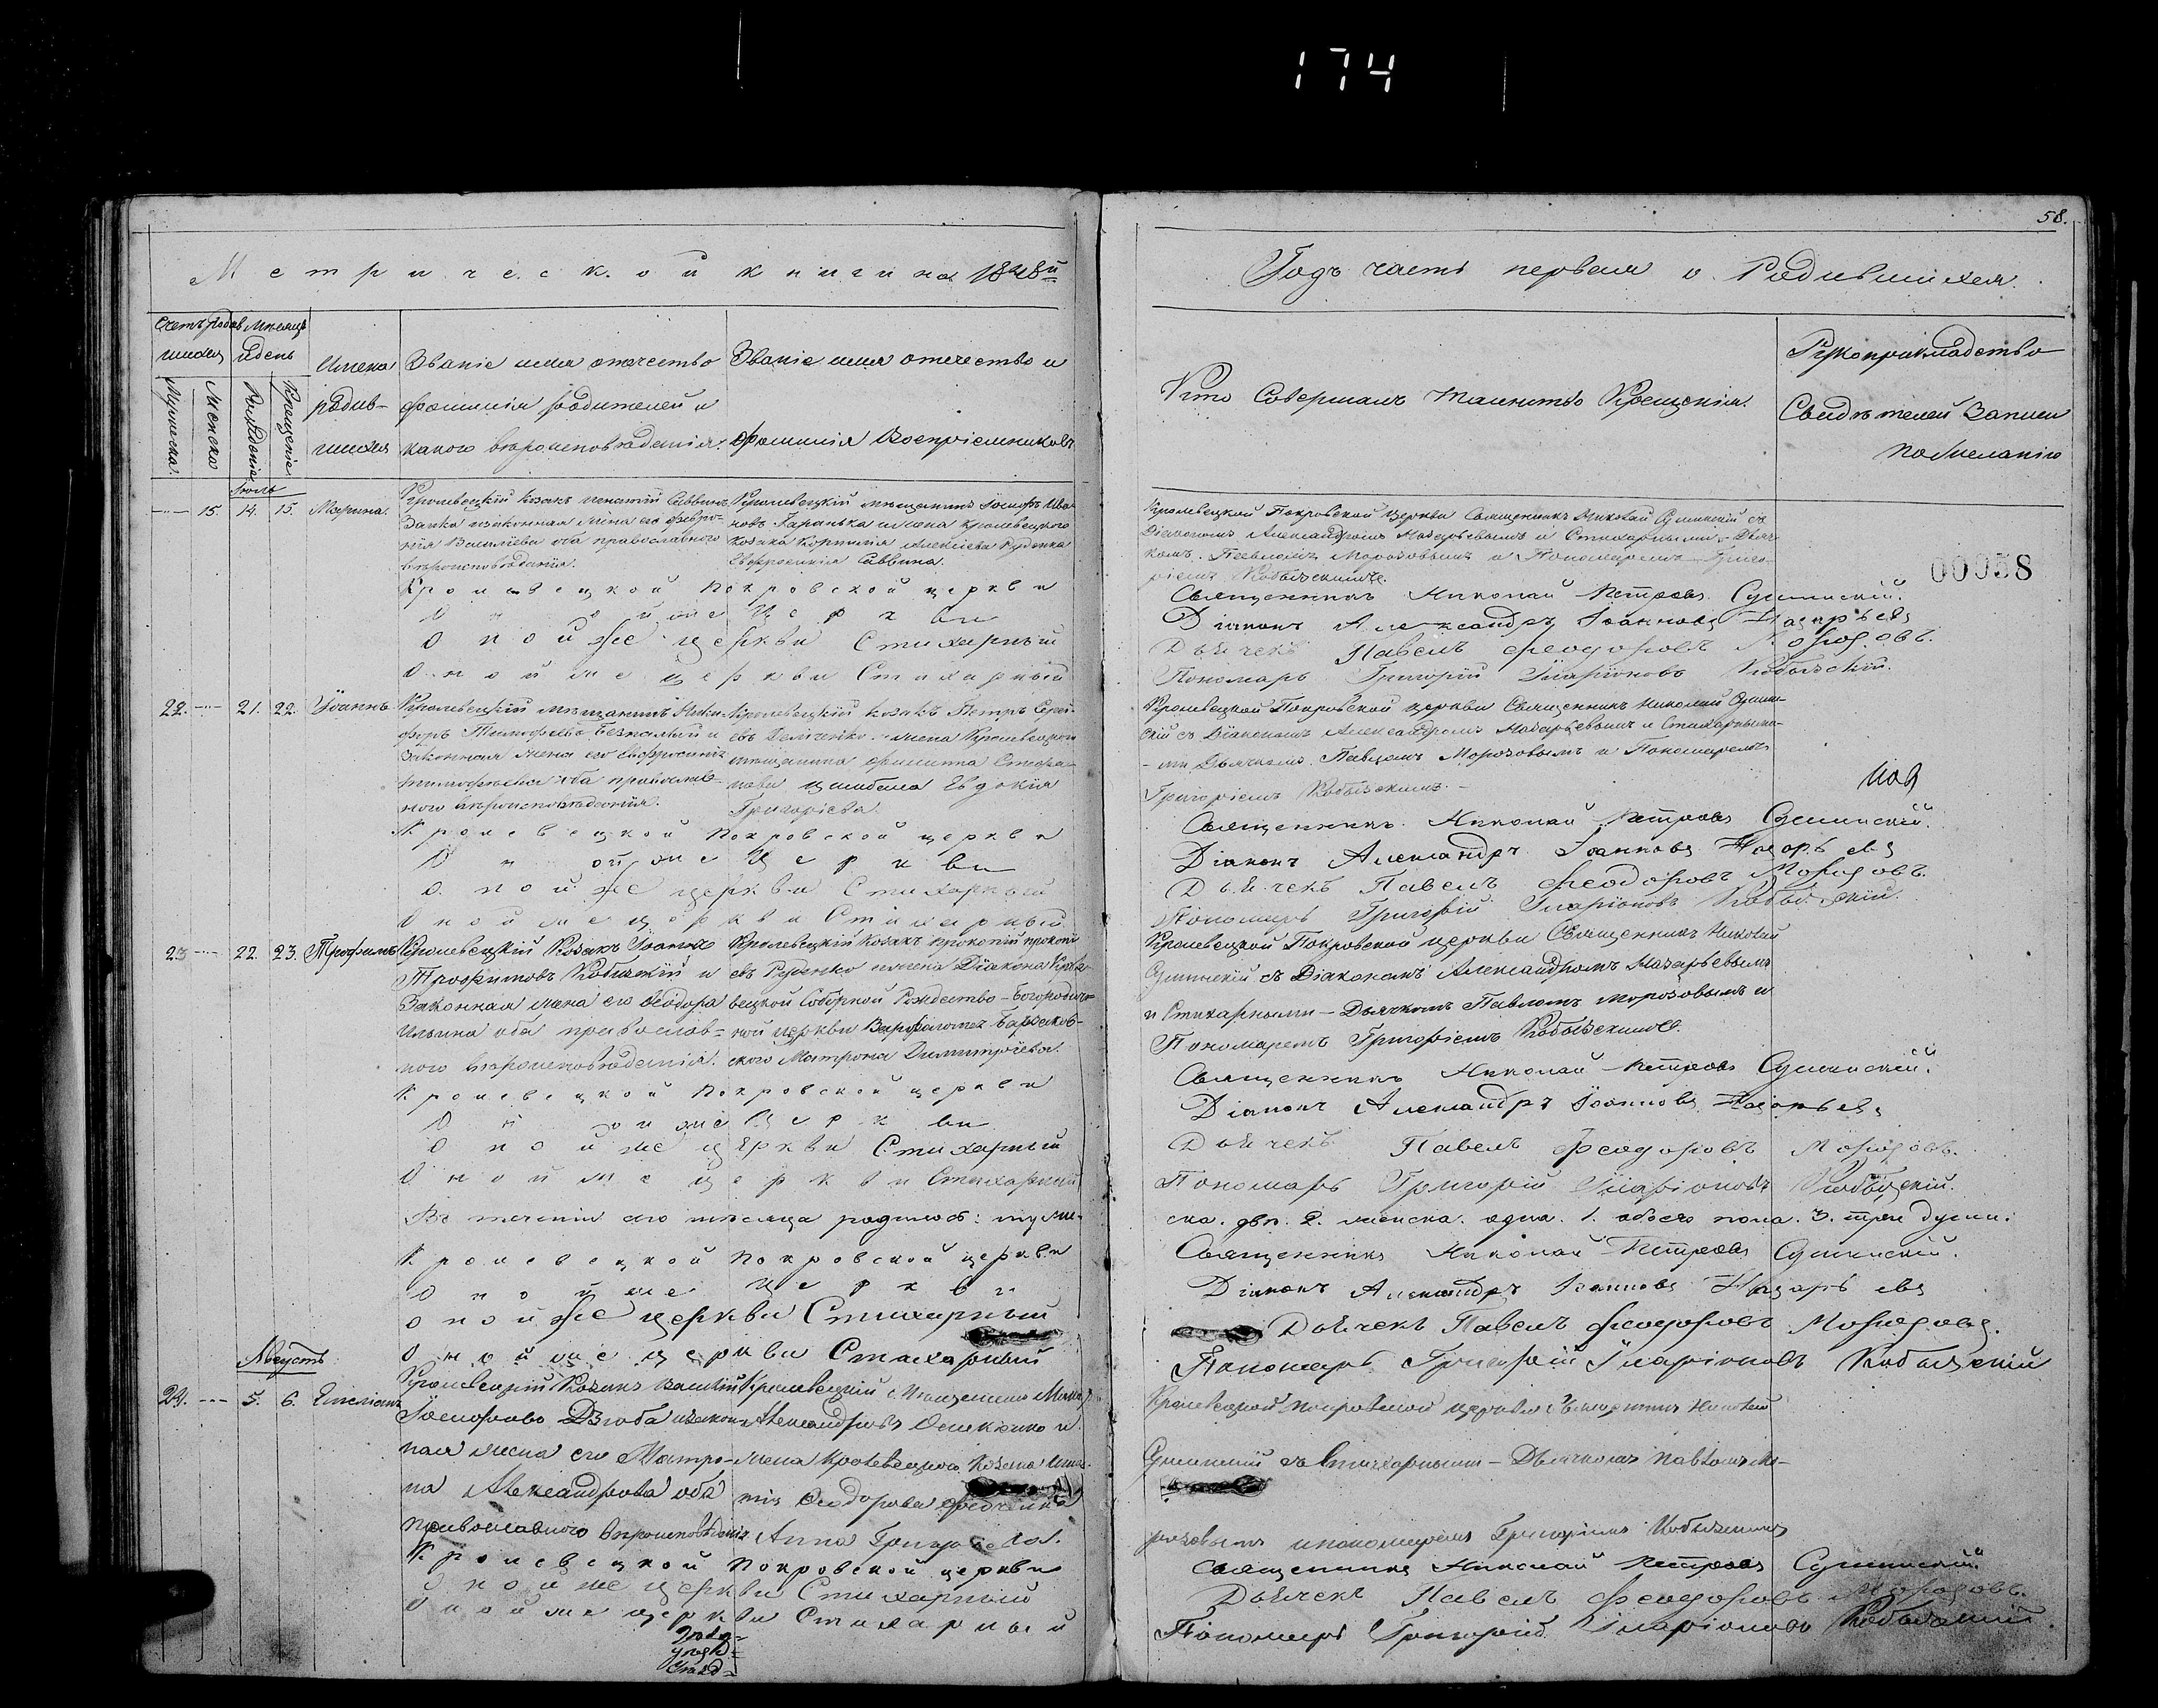 174
58.
Метрической книги на 1848й
Годъ часть первая о Родившихся.
Счетъ родив
шихся
Мѣсяцъ
и день
Имена
родив-
шихся
Званіе имя отчество
фамилія родителей и
какого вѣроисповѣданія.
Званіе имя отчество и
фамилія Воспріемниковъ
Мужеска.
Женска
Рожденіе
Крещеніе
Кто Совершалъ таинство Крещенія.
Рукоприкладство
Свидѣтелей Записи
по желанію
Іюль
15. 14. 15. Марина.
Кролевецкій Козакъ Игнатій Саввинъ
Заика законная жена его Февро-
нія Васильева оба православного
вѣроисповѣданія.
Кролевецкій мѣщанинъ Іосифъ Ива-
новъ жена Кролевецкого
козака Корнилія Алексіева Руденка
Евфросинія Саввина.
Кролевецкой Покровской церкви Священникъ Николай съ
Діакономъ Александромъ Назарьевымъ и Стихарными Дьяч-
комъ Павломъ Морозовымъ и Пономаремъ Григо-
ріемъ
00058
Кролевецкой Покровской церкви Священникъ Николай Петровъ
Оной же Церкви Діаконъ Александръ Іоанновъ Назарьевъ
Оной же церкви Стихарный Дьячекъ Павелъ Феодоровъ Морозовъ.
Оной же церкви Стихарный Пономарь Григорій Иларіоновъ
22. 21. 22. Іоаннъ
Кролевецкій мѣщанинъ Ники-
форъ Тимофеевъ и
Законная жена его Евфросинія
Тимофеева оба православ-
ного вѣроисповѣданія.
Кролевецкій козакъ Петръ Серге-
евъ жена Кролевецкого
мѣщанина Филиппа Стефа-
нова Евдокія
Григоріева.
Кролевецкой Покровской церкви Священникъ Николай
съ Діакономъ Александромъ Назарьевымъ и Стихарны-
ми Дьячкомъ Павломъ Морозовымъ и Пономаремъ
Григоріемъ
Кролевецкой Покровской церкви Священникъ Николай Петровъ
Оной же Церкви Діаконъ Александръ Іоанновъ Назарьевъ
Оной же церкви Стихарный Дьячекъ Павелъ Феодоровъ Морозовъ.
Оной же церкви Стихарный Пономарь Григорій Иларіоновъ
23 22. 23. Трофимъ
Кролевецкій Козакъ Іоаннъ
Трофимовъ и
Законная жена его Феодора
Ильина оба православ-
ного вѣроисповѣданія.
Кролевецкій Козакъ Прокопій Прокопі-
евъ Руденко жена Діакона Кроле-
вецкой Соборной Рождество-Богородич-
ной церкви Варфоломея
Матрона Димитріева.
Кролевецкой Покровской церкви Священникъ Николай
съ Діакономъ Александромъ Назарьевымъ
и Стихарными - Дьячкомъ Павломъ Морозовымъ и
Пономаремъ Григоріемъ
Кролевецкой Покровской церкви Священникъ Николай Петровъ
Оной же Церкви Діаконъ Александръ Іоанновъ Назарьевъ
Оной же церкви Стихарный Дьячекъ Павелъ Феодоровъ Морозовъ.
Оной же церкви Стихарный Пономарь Григорій Иларіоновъ
Въ теченіи сего мѣсяца родилось: муже-
ска. два. 2. женска. одна. 1. обоего пола. 3. три души.
Кролевецкой Покровской церкви Священникъ Николай Петровъ
Оной же церкви Діаконъ Александръ Іоанновъ Назарьевъ
Оной же церкви Стихарный Дьячекъ Павелъ Феодоровъ Морозовъ.
Оной же церкви Стихарный Пономарь Григорій Иларіоновъ
Августъ
24. 5. 6. Емеліанъ
Кролевецкій Козакъ Василій
Іосифовъ Дзюба и закон-
ная жена его Матро-
на Александрова оба
православного вѣроисповѣданія
Кролевецкій Мѣщанинъ
Александровъ и
жена Кролевецкого Козака
Феодорова
Анна Григорьева.
Кролевецкой Покровской церкви Священникъ Николай
съ Стихарными - Дьячкомъ Павломъ Мо-
розовымъ и пономаремъ Григоріемъ
Кролевецкой Покровской церкви Священникъ Николай Петровъ
Оной же церкви Стихарный Дьячекъ Павелъ Феодоровъ Морозовъ.
Оной же церкви Стихарный Пономарь Григорій Иларіоновъ